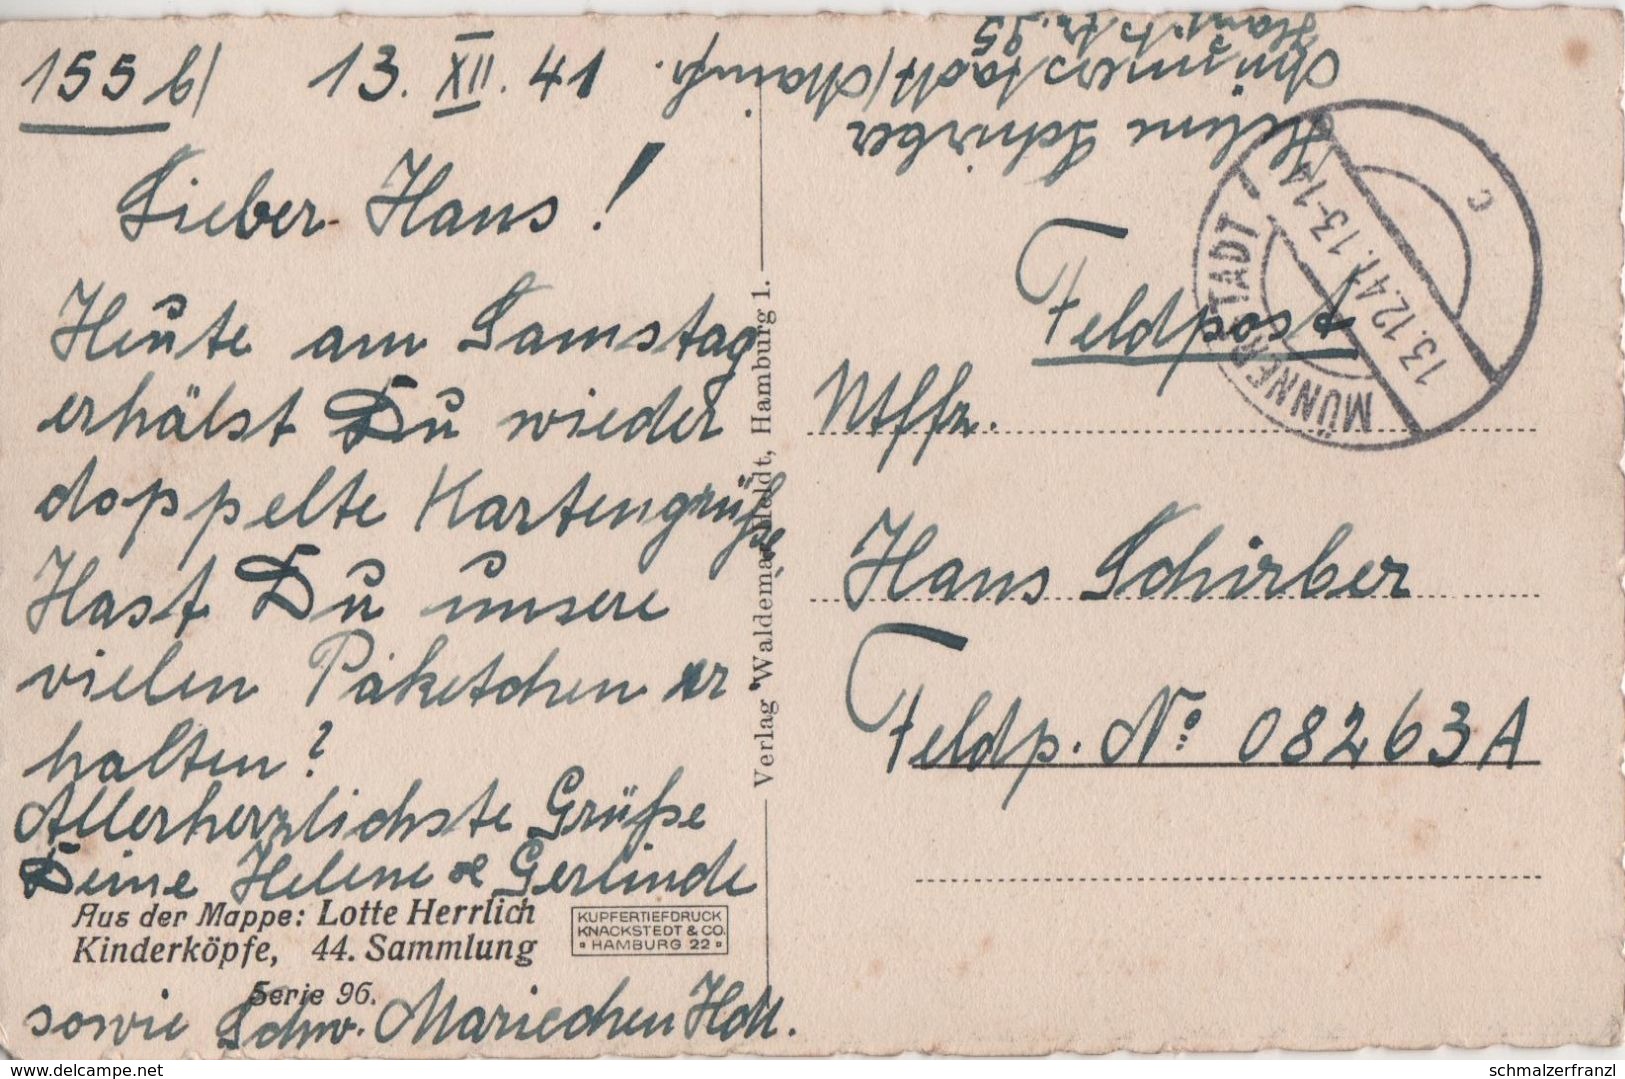 155 b) 13. XII. 41
Lieber Hans!
Heute am Samstag
erhälst Du wieder
doppelte Kartengrüße
Hast Du unsere
vielen Päketchen er
halten?
Allerherzlichste Grüße
Deine Helene & Gerlinde
Aus der Mappe: Lotte Herrlich
Kinderköpfe, 44. Sammlung
Serie 96.
KUPFERTIEFDRUCK
KNACKSTEDT & CO.
HAMBURG 22
sowie Schw. Mariechen
Verlag Waldemar Heldt, Hamburg 1.
Helene Schirber
Münnerstadt/Mainfr.
Hauptstr. 95
MÜNNERSTADT
13.12.41.13-14
c
Feldpost
Utffz.
Hans Schirber
Feldp. No: 08263A
delcampe.net
schmalzerfranzl